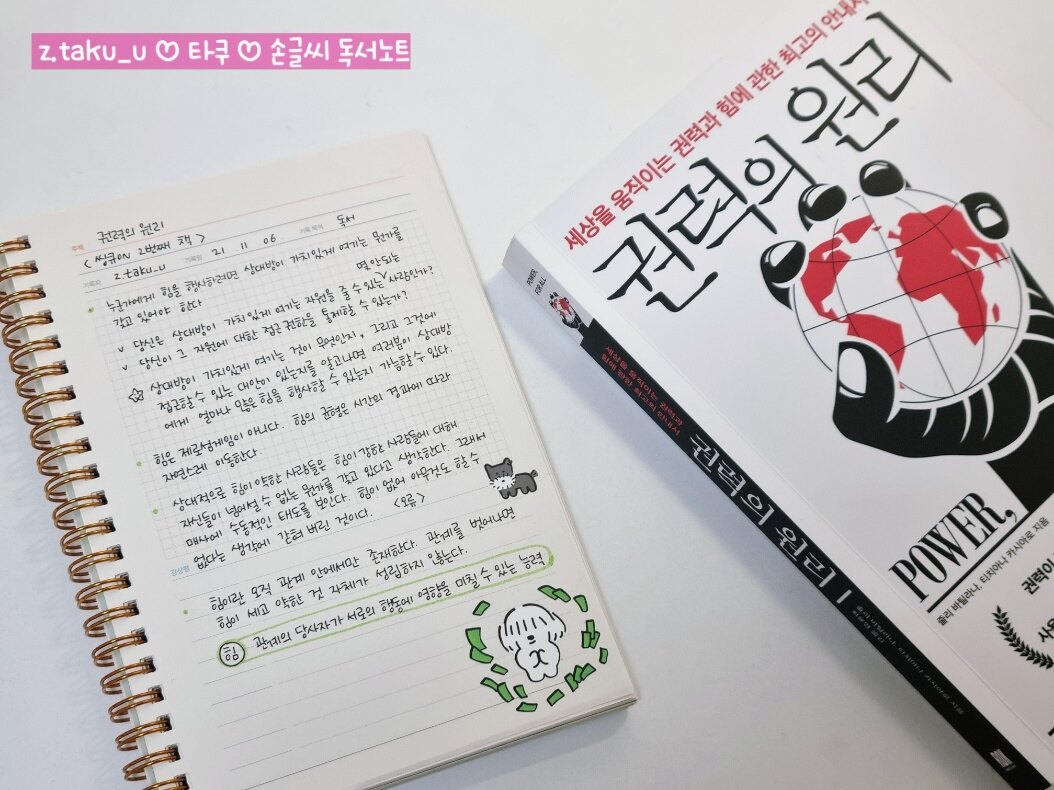 z.taku_u ♡ 타쿠 ♡ 손글씨 독서노트
주제 권력의 원리
< 씽큐ON 2번째 책 >
기록자 z.taku_u 기록일 21 11 06 기록 목적 독서
누군가에게 힘을 행사하려면 상대방이 가치있게 여기는 뭔가를
갖고 있어야 한다
몇 안되는
v 당신은 상대방이 가치있게 여기는 자원을 줄 수 있는 사람인가?
v 당신이 그 자원에 대한 접근 권한을 통제할 수 있는가?
☆ 상대방이 가치있게 여기는 것이 무엇인지, 그리고 그것에
접근할 수 있는 대안이 있는지를 알고나면 여러분이 상대방
에게 얼마나 많은 힘을 행사할 수 있는지 가늠할 수 있다.
힘은 제로섬게임이 아니다. 힘의 균형은 시간의 경과에 따라
자연스레 이동한다
상대적으로 힘이 약한 사람들은 힘이 강한 사람들에 대해
자신들이 넘어설 수 없는 뭔가를 갖고 있다고 생각한다. 그래서
매사에 수동적인 태도를 보인다. 힘이 없어 아무것도 할 수
없다는 생각에 갇혀 버린 것이다. <오류>
감상평
힘이란 오직 관계 안에서만 존재한다. 관계를 벗어나면
힘이 세고 약한 것 자체가 성립하지 않는다.
힘 관계의 당사자가 서로의 행동에 영향을 미칠 수 있는 능력
세상을 움직이는 권력과 힘에 관한 최고의 안내서
권력의 원리
POWER,
줄리 바틸라나, 티치아나 카시아로 지음
권력이
사용
POWER
FOR ALL
세상을 움직이는 권력과
힘에 관한 최고의 안내서
권력의 원리
줄리 바틸라나, 티치아나 카시아로 지음